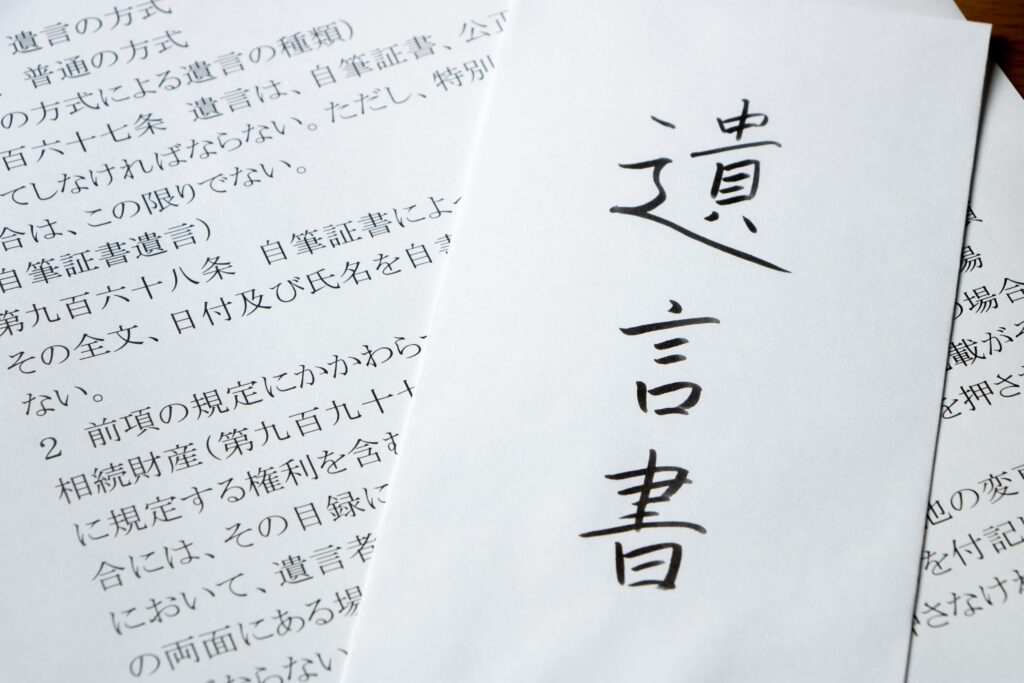 遺言の方式
普通の方式
の方式による遺言の種類）
百六十七条　遺言は、自筆証書、公正
てしなければならない。ただし、特別
合は、この限りでない。
自筆証書遺言）
第九百六十八条　自筆証書によ
その全文、日付及び氏名を自書
ない。
2　前項の規定にかかわら
相続財産（第九百九十七
に規定する権利を含む
合には、その目録に
において、遺言者
の両面にある場
ならない
遺言書
場
の場合
載がそ
を押さ
他の変更
を付記し
さなけれ